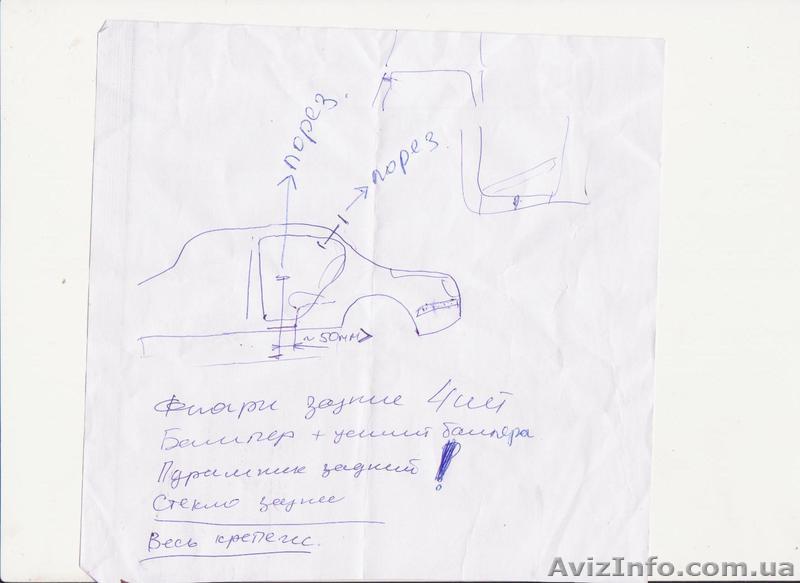 порез.
порез.
~50мм
Фнари задние 4шт
Бампер + усилит бампера
Пдрамник задний !
Стекло задне
Весь крепеж.
AvizInfo.com.ua